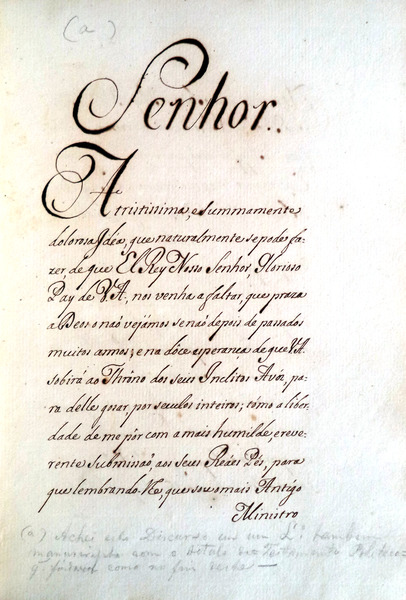 (a)
Senhor.
A tristissima, e summamente
dolorosa Idéa, que naturalmente se pode fa-
zer, de que El Rey Nosso Senhor, Glorioso
Pay de V.A, nos venha a faltar, que praza
a Deos o naõ vejámos senaõ depois de passados
muitos annos; e na dôce esperança de que V.A.
sobirá ao Throno dos seus Inclitos Avós, pa-
ra delle gosar, por seculos inteiros; tómo a liber-
dade de me pôr com a mais humilde, e reve-
rente Submissaõ, aos seus Reáes Pés, para
que lembrando-lhe, que sou o mais Antigo
Ministro
(a) Achei este Discurso em um L.º tambem
manuscripto com o titulo de Testamento Politico
q. como no fim